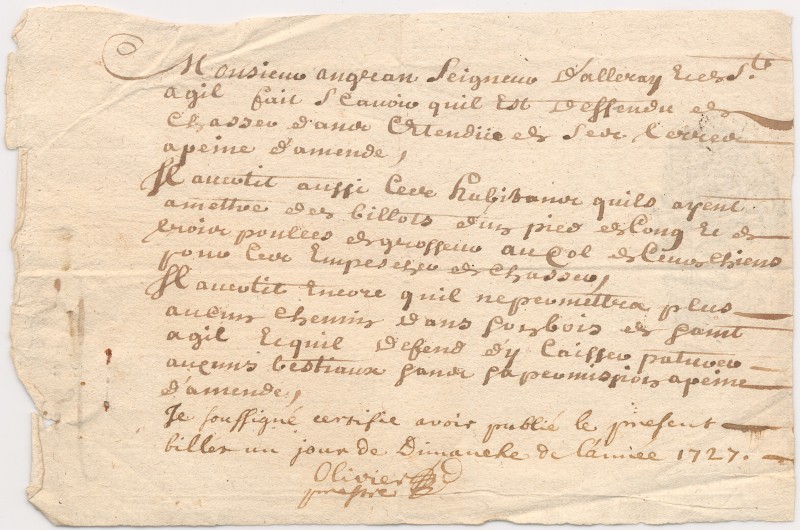 Monsieur angran Seigneur Dalleray Et de St.
agil fait Scavoir quil Est Deffendu de
Chasser dans L'Etendüe de Ses Terres
a peine d'amende,
Il avertit aussi Les habitans quils ayent
a mettre des billots d'un pied de Long Et de
trois poulces de grosseur au Col de Leurs Chiens
pour Les Empescher de Chasser,
Il avertit Encore quil ne permettra plus
aucuns Chemins dans son bois de saint
agil Et quil Defend d'y Laisser paturer
aucuns bestiaux sans sa permission a peine
d'amende,
Je soussigné certifie avoir publié le present
billet un jour de Dimanche de l'année 1727.
Olivier
prestre